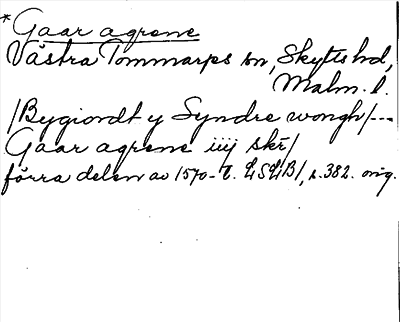 * Gaar agrene
Västra Tommarps sn, Skytts hd,
Malm. l.
/Bygiordt y Syndre wongh/---
Gaar agrene iiij skr/
förra delen av 1570-t. LSLB/, s.382. orig.